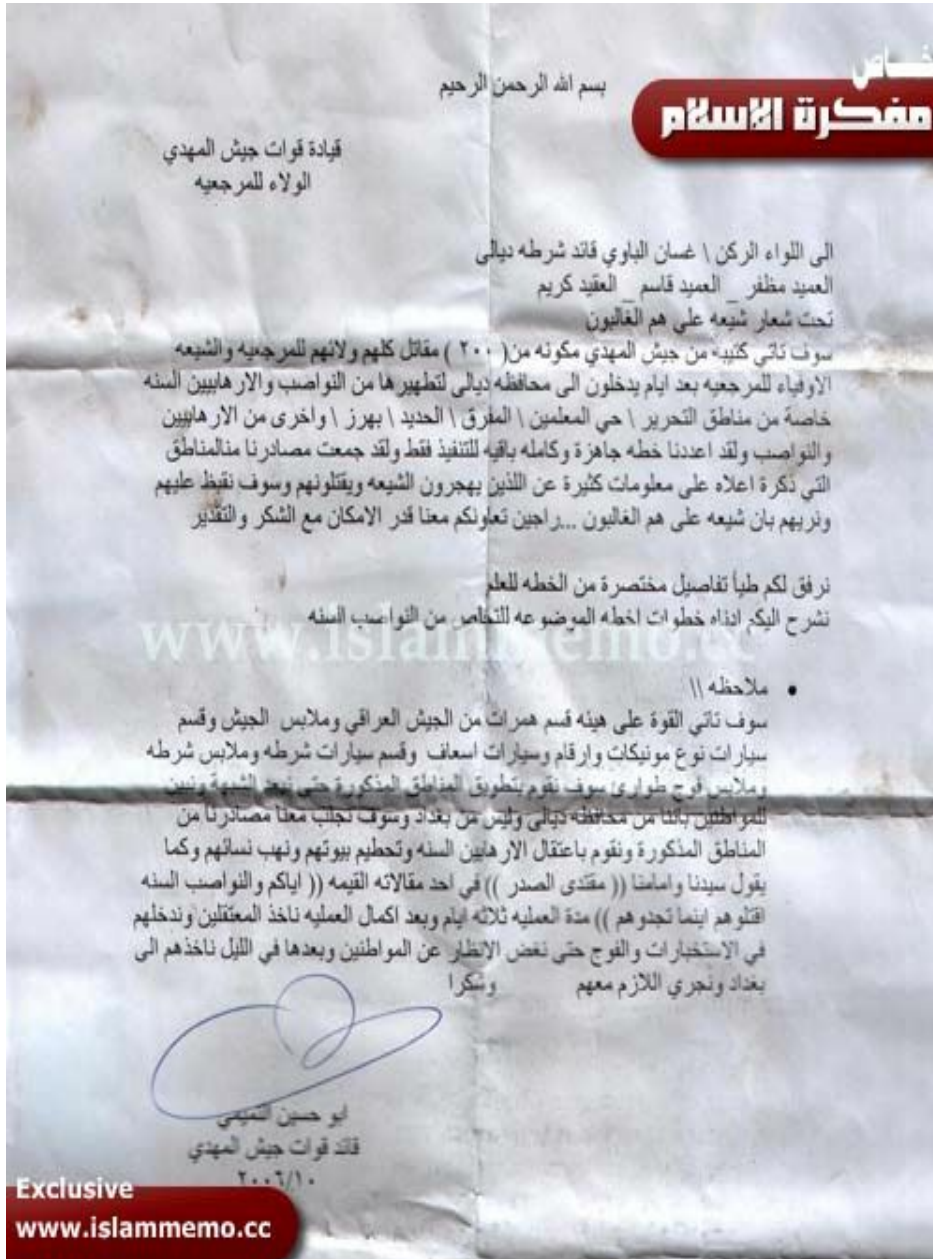 خاص
مفكرة الاسلام
بسم الله الرحمن الرحيم
قيادة قوات جيش المهدي
الولاء للمرجعيه
الى اللواء الركن \ غسان الباوي قائد شرطه ديالى
العميد مظفر _ العميد قاسم _ العقيد كريم
تحت شعار شيعه علي هم الغالبون
سوف تاتي كتيبه من جيش المهدي مكونه من( ٢٠٠ ) مقاتل كلهم ولائهم للمرجعيه والشيعه
الاوفياء للمرجعيه بعد ايام يدخلون الى محافظه ديالى لتطهيرها من النواصب والارهابيين السنه
خاصة من مناطق التحرير \ حي المعلمين \ المفرق \ الحديد \ بهرز \ واخرى من الارهابيين
والنواصب ولقد اعددنا خطه جاهزة وكامله باقيه للتنفيذ فقط ولقد جمعت مصادرنا منالمناطق
التي ذكرة اعلاه على معلومات كثيرة عن اللذين يهجرون الشيعه ويقتلونهم وسوف نقبظ عليهم
ونريهم بان شيعه على هم الغالبون ...راجين تعاونكم معنا قدر الامكان مع الشكر والتقدير
نرفق لكم طياً تفاصيل مختصرة من الخطه للعلم
نشرح اليكم ادناه خطوات اخطه الموضوعه للتخلص من النواصب السنه
www.islammemo.cc
• ملاحظه \\
سوف تاتي القوة على هيئه قسم همرات من الجيش العراقي وملابس الجيش وقسم
سيارات نوع مونيكات وارقام وسيارات اسعاف وقسم سيارات شرطه وملابس شرطه
وملابس فوج طوارئ سوف نقوم بتطويق المناطق المذكورة حتى نبعد الشبهة ونبين
للمواطنين باننا من محافظه ديالى وليس من بغداد وسوف نجلب معنا مصادرنا من
المناطق المذكورة ونقوم باعتقال الارهابين السنه وتحطيم بيوتهم ونهب نسائهم وكما
يقول سيدنا وامامنا (( مقتدى الصدر )) في احد مقالاته القيمه (( اياكم والنواصب السنه
اقتلوهم اينما تجدوهم )) مدة العمليه ثلاثه ايام وبعد اكمال العمليه ناخذ المعتقلين وندخلهم
في الاستخبارات والفوج حتى نغض الانظار عن المواطنين وبعدها في الليل ناخذهم الى
بغداد ونجري اللازم معهم وشكرا
ابو حسين التميمي
قائد قوات جيش المهدي
٢٠٠٦/١٠
Exclusive
www.islammemo.cc